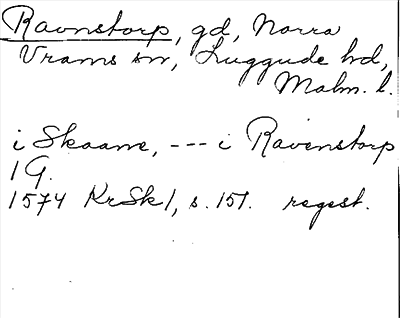 Ravnstorp, gd, Norra
Vrams sn, Luggude hd,
Malm. l.
i Skaane, --- i Ravenstorp
1 G.
1574 KrSk1, s. 151. regest.